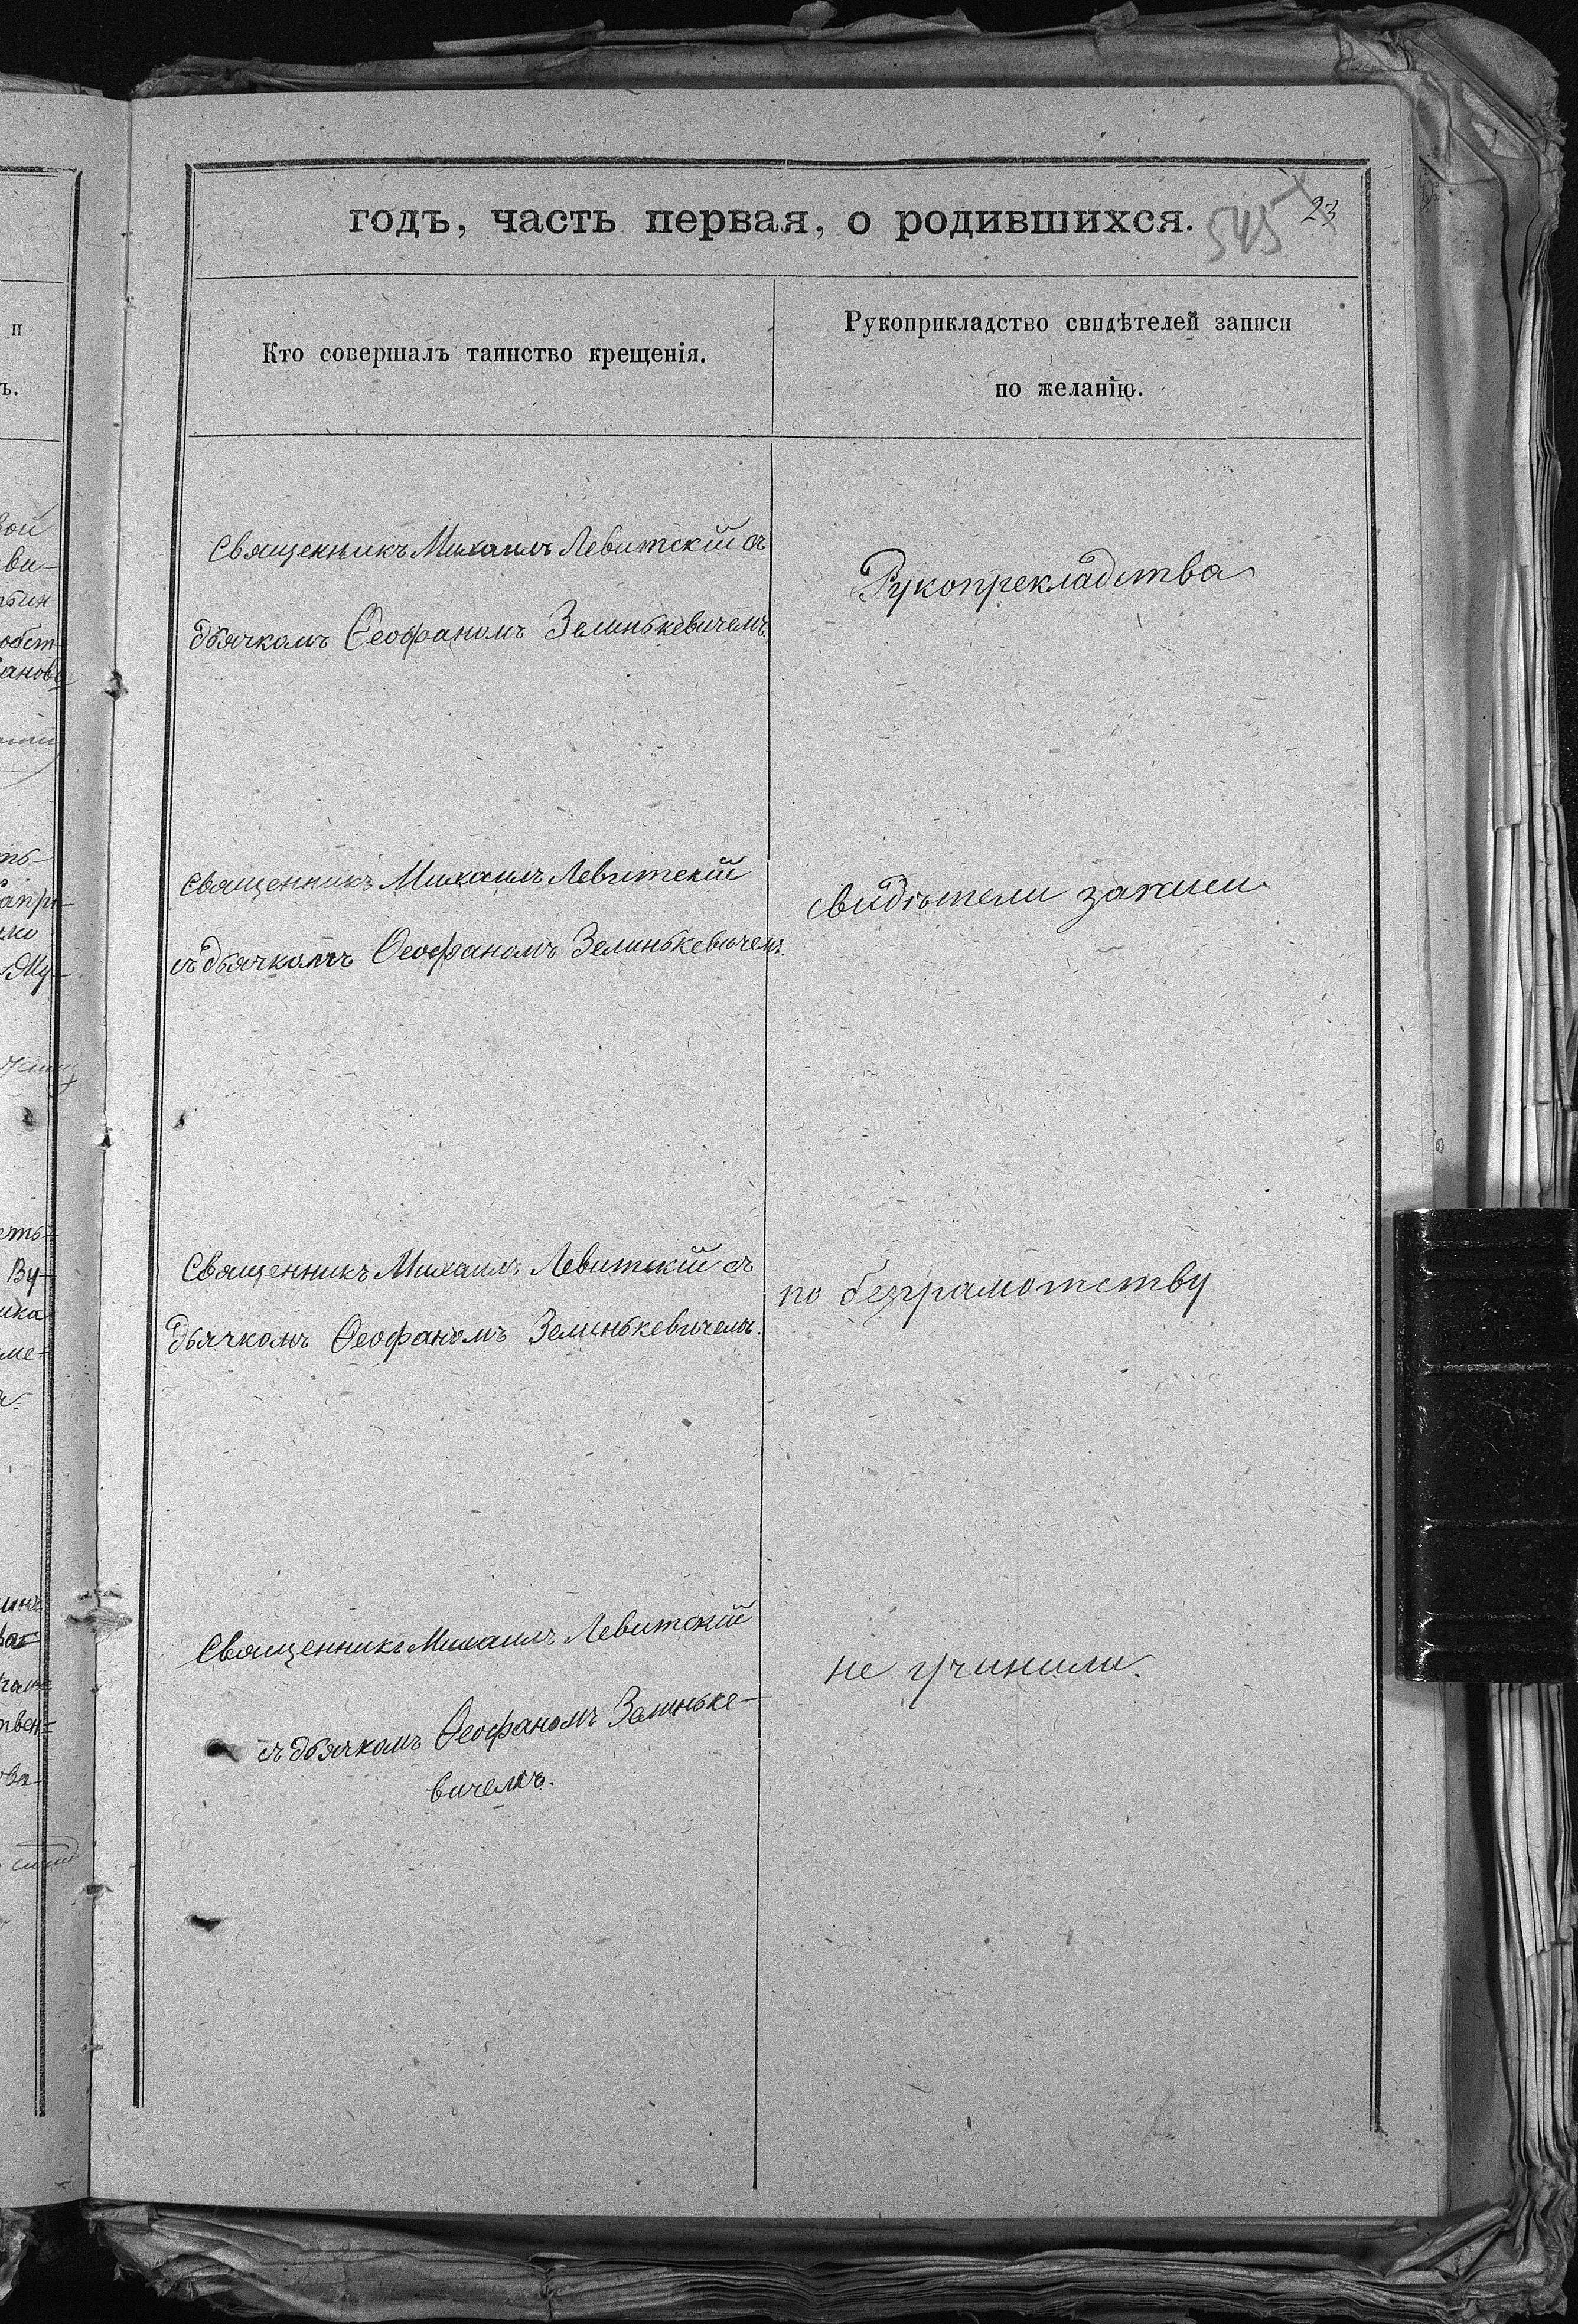 годъ, часть первая, о родившихся.
545
23
Кто совершалъ таинство крещенія.
Рукоприкладство свидѣтелей записи
по желанію.
Священникъ Михаилъ Левитскій съ
дьячкомъ Ѳеофаномъ Зелинькевичемъ.
Рукопрекладства
Священникъ Михаилъ Левитскій
съ дьячкомъ Ѳеофаномъ Зелинькевичемъ.
свидѣтели записи
Священникъ Михаилъ Левитскій съ
дьячкомъ Ѳеофаномъ Зелинькевичемъ.
по безграмотству
Священникъ Михаилъ Левитскій
съ дьячкомъ Ѳеофаномъ Зелиньке-
вичемъ.
не учинили.